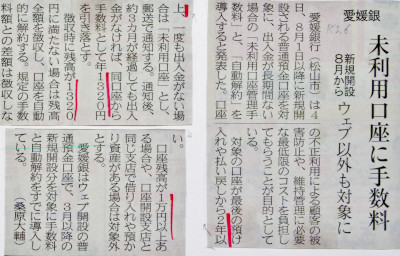 愛媛銀
未利用口座に手数料
新規開設
8月から
ウェブ以外も対象に
愛媛銀行(松山市)は4
日、8月1日以降に新規開
設される普通預金口座を対
象に、出入金が長期間ない
場合の「未利用口座管理手
数料」と、「自動解約」を
導入すると発表した。口座
の不正利用による顧客の被
害防止や、維持管理に必要
な最低限のコストを負担し
てもらうことが目的として
いる。
対象の口座が最後の預け
入れや払い戻しから2年以
上、一度も出入金がない場
合は「未利用口座」とし、
郵送で通知する。通知後、
約3カ月が経過しても出入
金がなければ、同口座から
手数料として年1320円
を引き落とす。
徴収時に残高が1320
円に満たない場合は残高
全額を徴収し、口座を自動
的に解約する。規定の手数
料額との差額は徴収しな
い。
口座残高が1万円以上あ
る場合や、口座開設支店と
同じ支店で借り入れや預か
り資産がある場合は対象外
とする。
愛媛銀はウェブ開設の普
通預金口座で、3月以降の
新規開設分を対象に手数料
と自動解約をすでに導入し
ている。
(桑原大輔)